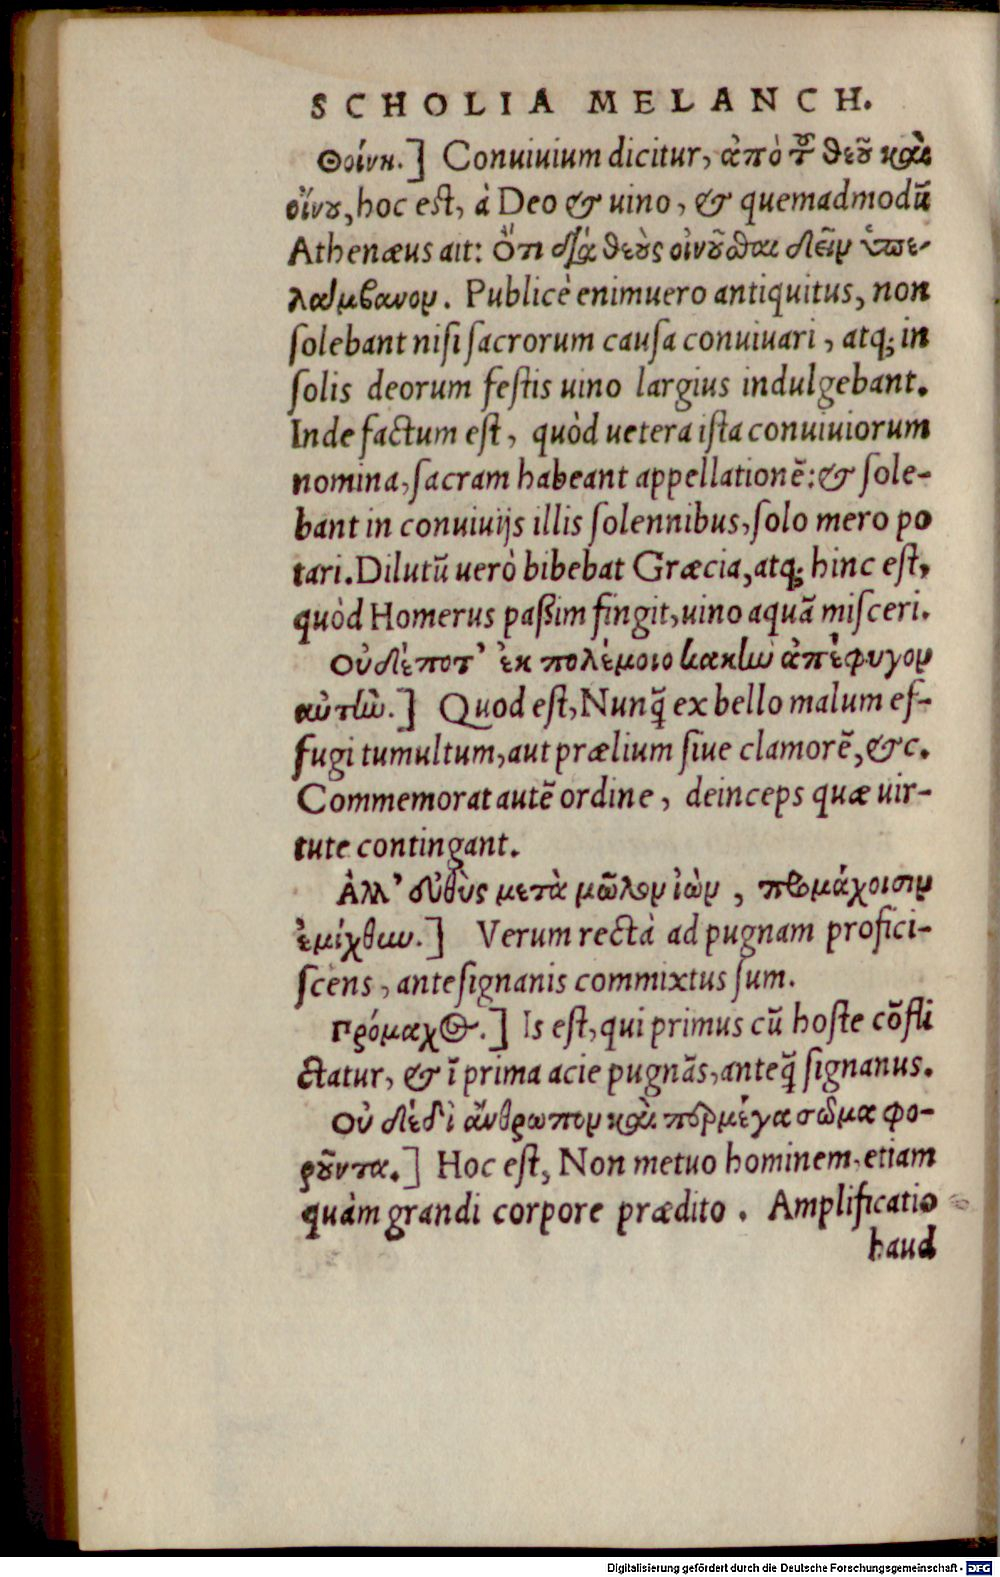 SCHOLIA MELANCH.
Θοίνη.] Conuiuium dicitur, ἀπὸ τοῦ θεοῦ καὶ
οἴνου, hoc est, à Deo & uino, & quemadmodũ
Athenæus ait: Ὅτι διὰ θεοὺς οἰνοῦσθαι δεῖν ὑπε-
λάμβανον. Publicè enimuero antiquitus, non
ſolebant niſi ſacrorum cauſa conuiuari, atq; in
ſolis deorum feſtis uino largius indulgebant.
Inde factum eſt, quòd uetera iſta conuiuiorum
nomina, ſacram habeant appellationẽ: & ſole-
bant in conuiuijs illis ſolennibus, ſolo mero po
tari. Dilutũ uerò bibebat Græcia, atq; hinc eſt,
quòd Homerus paßim fingit, uino aquã miſceri.
Οὐδέποτ’ ἐκ πολέμοιο κακὴν ἀπέφυγον
αὐτὴν.] Quod eſt, Nunq̃ ex bello malum ef-
fugi tumultum, aut prælium ſiue clamorẽ, &c.
Commemorat autẽ ordine, deinceps quæ uir-
tute contingant.
Ἀλλ’ εὐθὺς μετὰ μῶλον ἰὼν, προμάχοισιν
ἐμίχθην.] Verum rectà ad pugnam profici-
ſcens, anteſignanis commixtus ſum.
Πρόμαχος.] Is eſt, qui primus cũ hoſte cõfli
ctatur, & ĩ prima acie pugnãs, anteq̃ ſignanus.
Οὐ δέδι’ ἄνθρωπον καὶ περ μέγα σῶμα φο-
ροῦντα.] Hoc eſt, Non metuo hominem, etiam
quàm grandi corpore prædito. Amplificatio
haud
Digitalisierung gefördert durch die Deutsche Forschungsgemeinschaft - DFG